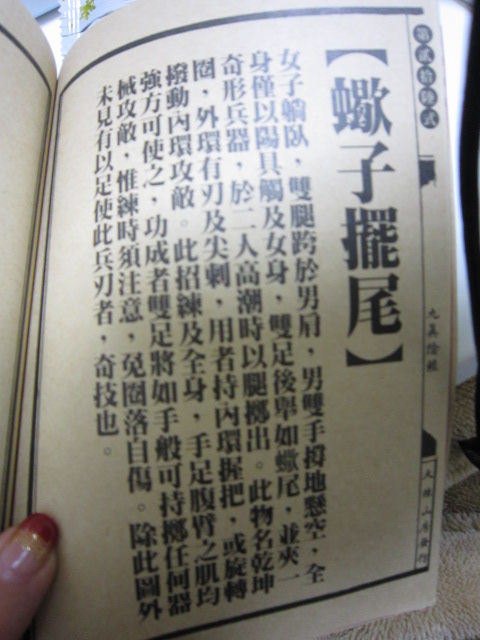 第貳拾陸式
【蠍子擺尾】
女子躺臥，雙腿跨於男肩，男雙手撐地懸空，全
身僅以陽具觸及女身，雙足後舉如蠍尾，並夾一
奇形兵器，於二人高潮時以腿擲出。此物名乾坤
圈，外環有刃及尖刺，用者持內環握把，或旋轉
撥動內環攻敵。此招練及全身，手足腹臂之肌均
強方可使之，功成者雙足將如手般可持擲任何器
械攻敵，惟練時須注意，免圈落自傷。除此圖外
未見有以足使此兵刃者，奇技也。
九真陰經